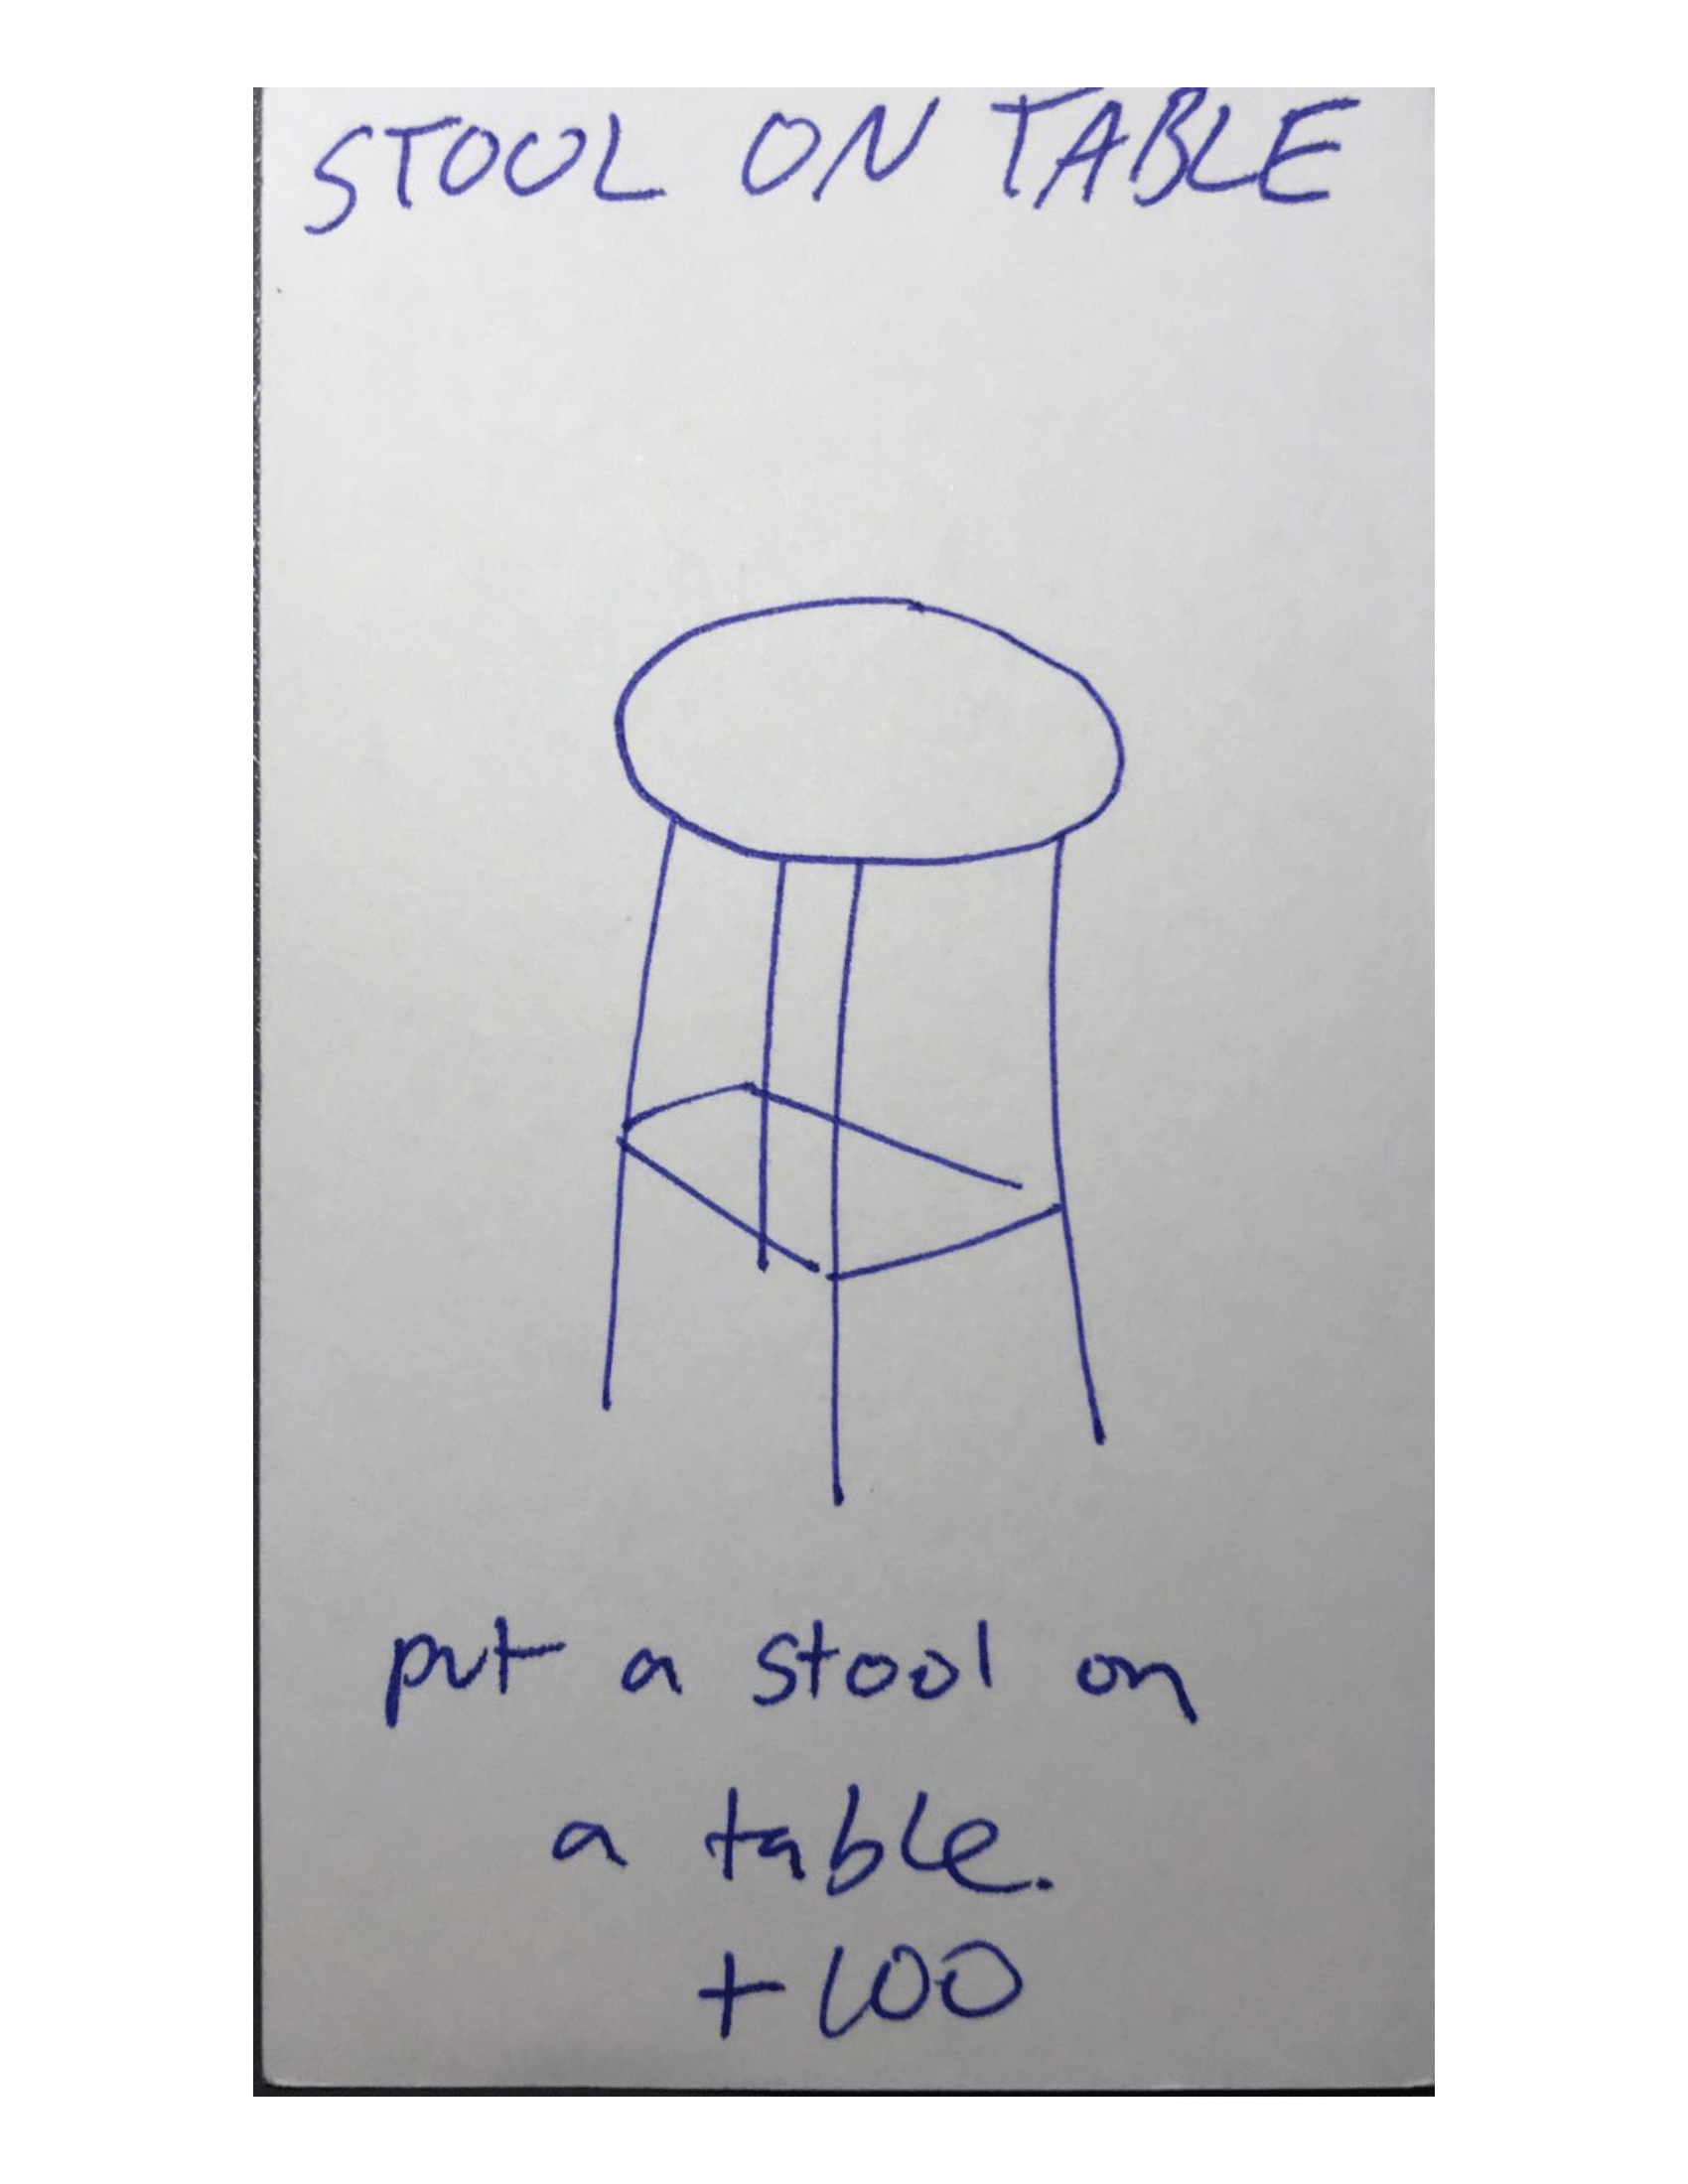 STOOL ON TABLE
put a stool on
a table.
+100